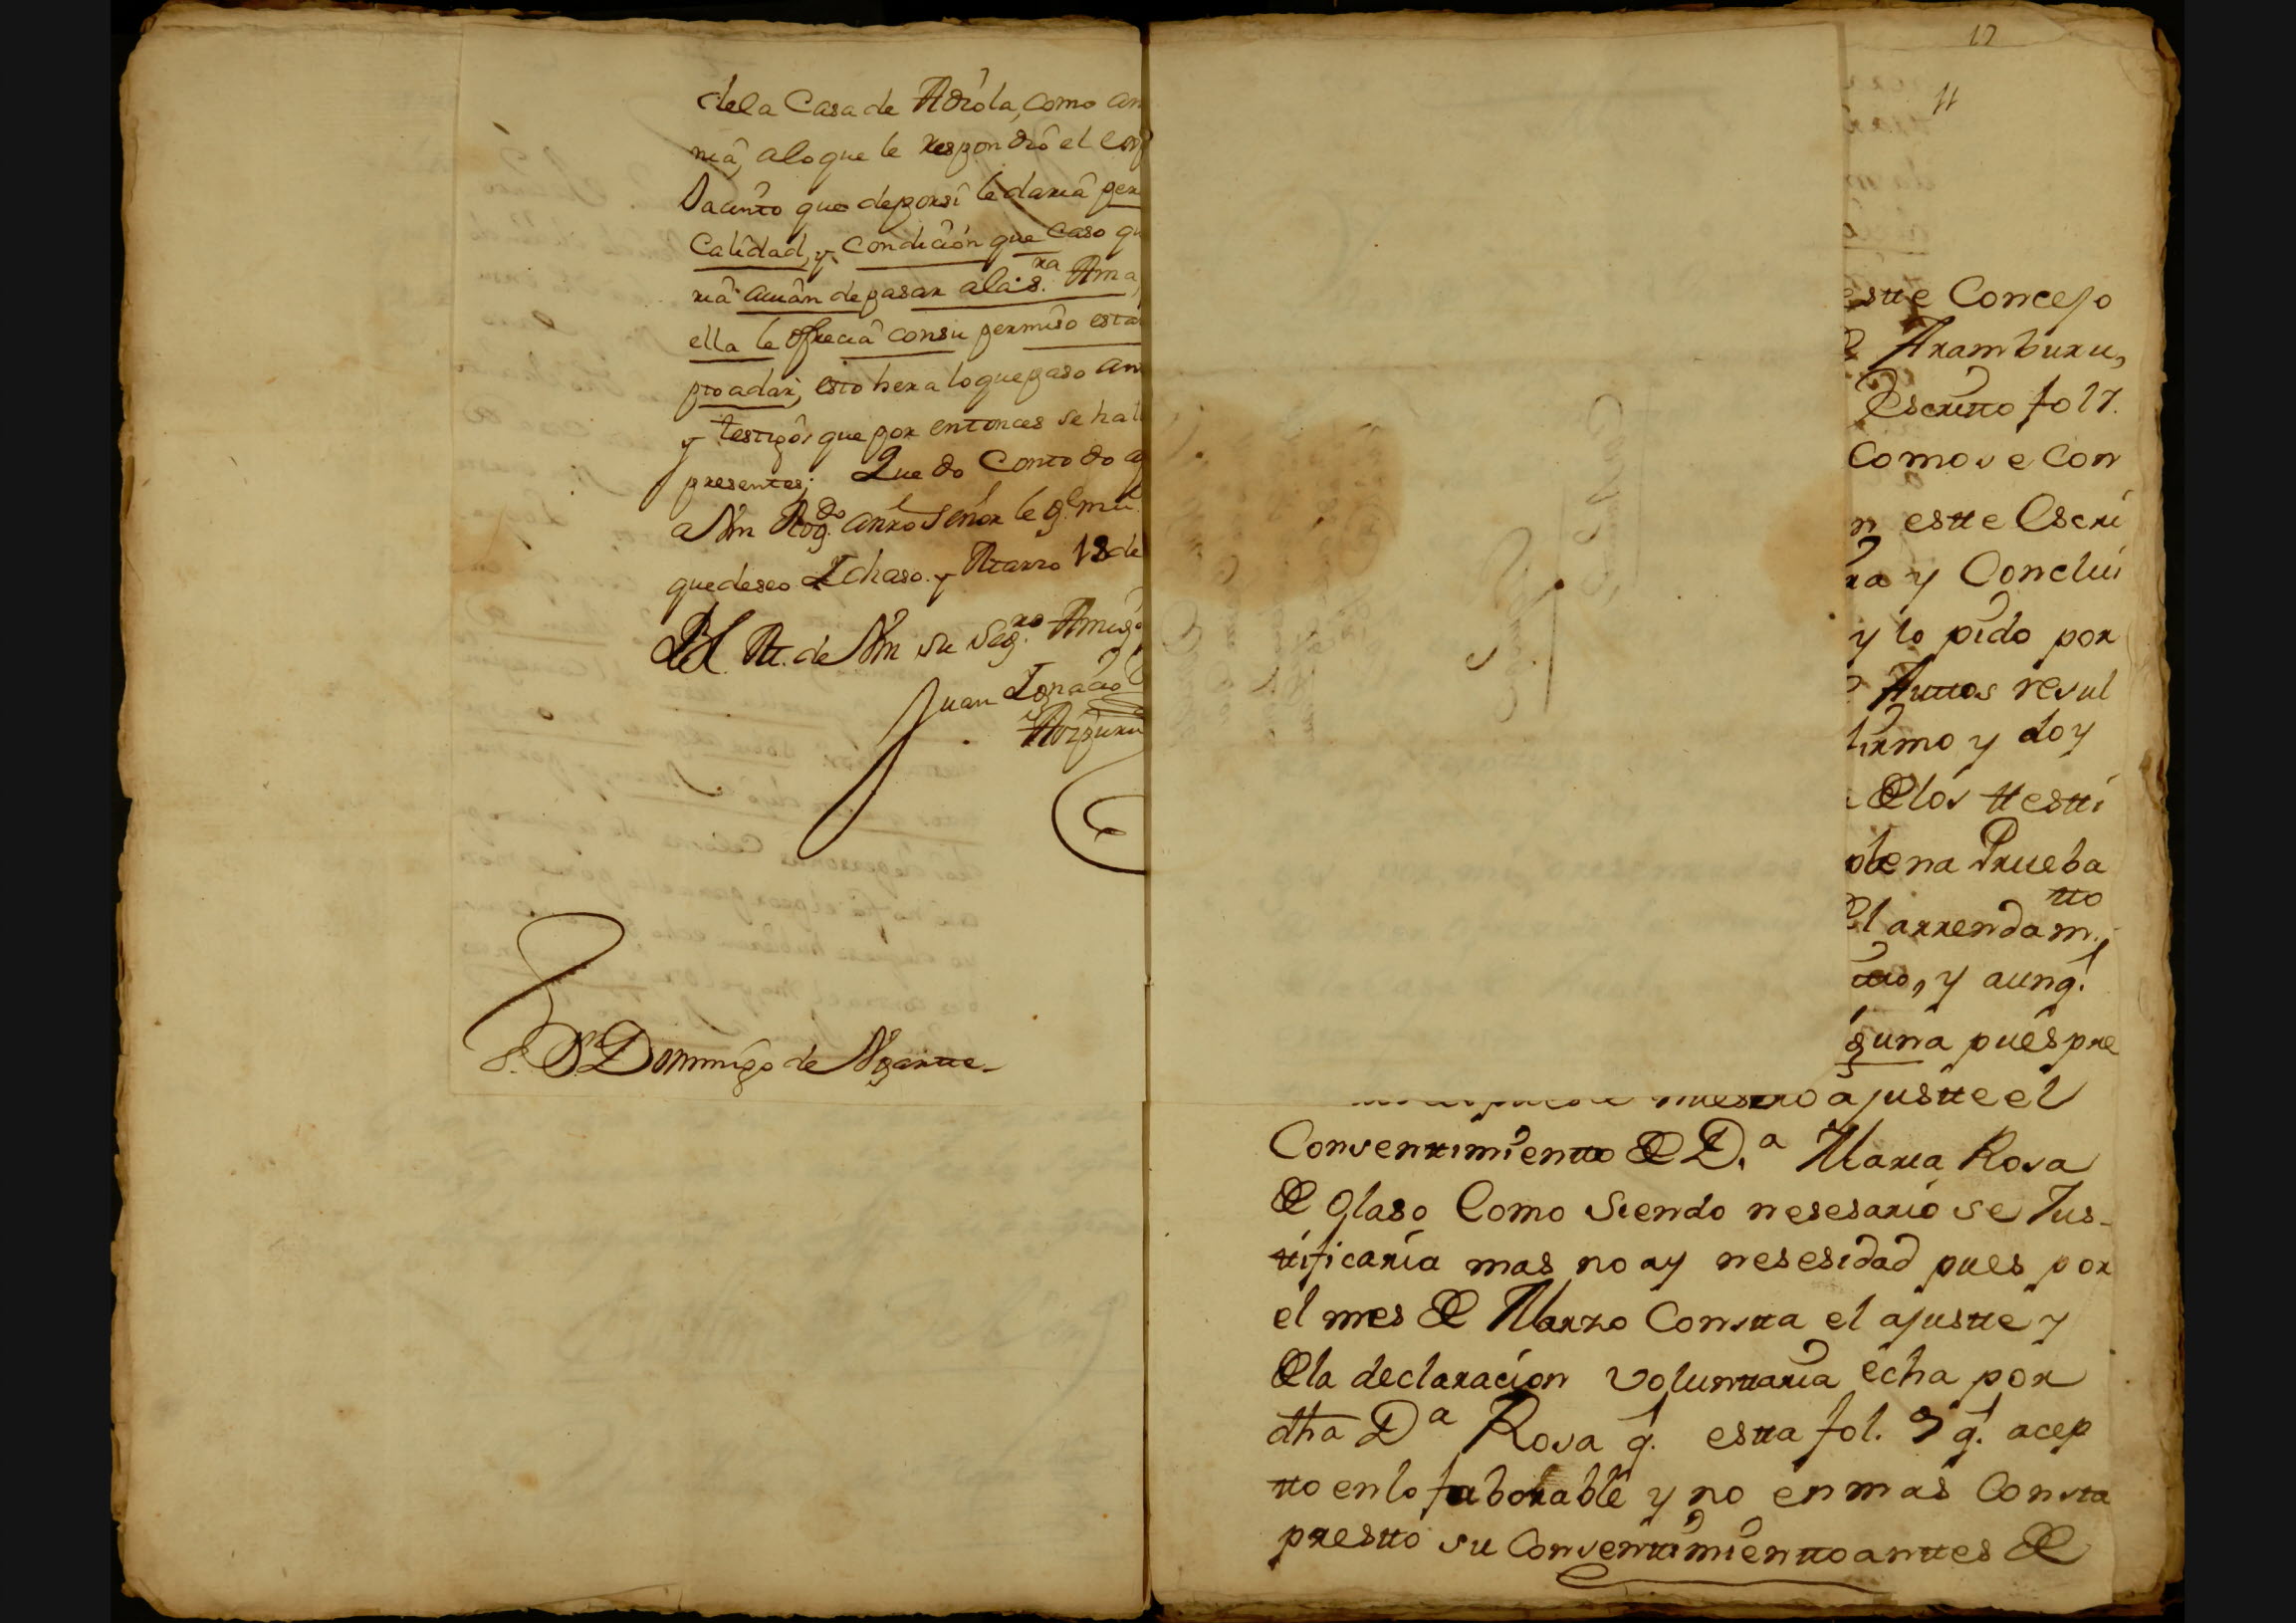 dela Casa de Adiola, como an
nia, aloque le respondio el
Jacinto que deporsi le daria per
Calidad, y condicion que caso qu
ria accian depasar alas.ra Ama,
ella le ofrecia consu permiso esta
pto adar; esto hera loquepaso an
y testigos que por entonces se hal
presentes; Quedo Contodo
a Vm Rog.do a nro Señor le g.
quedeseo Ichaso. y Marzo 18 de
BL M. de Vm su seg.ro Amigo
Juan Ignacio
Aozpuru
S. D. Domingo de Ugartte
10
11
estte Concejo
Aramburu,
Escritto fol 7.
Como se Con
n estte Escri
ra y Conclui
y lo pido por
Auttos resul
firmo y doy
Elos ttestti
plena Prueba
el arrendam.tto
tto, y aunq.
guna pues pre
nuestro ajustte el
Consenttimientto De D.a Maria Rosa
De Olaso Como Siendo nesesario se Jus-
ttificaria mas no ay nesesidad pues por
el mes De Marzo Constta el ajustte y
Dela declaracion volunttaria echa por
dha D.a Rosa q. estta fol. 9 q. acep
tto enlo faborable y no en mas Consta
presttó su Consenttimientto anttes De